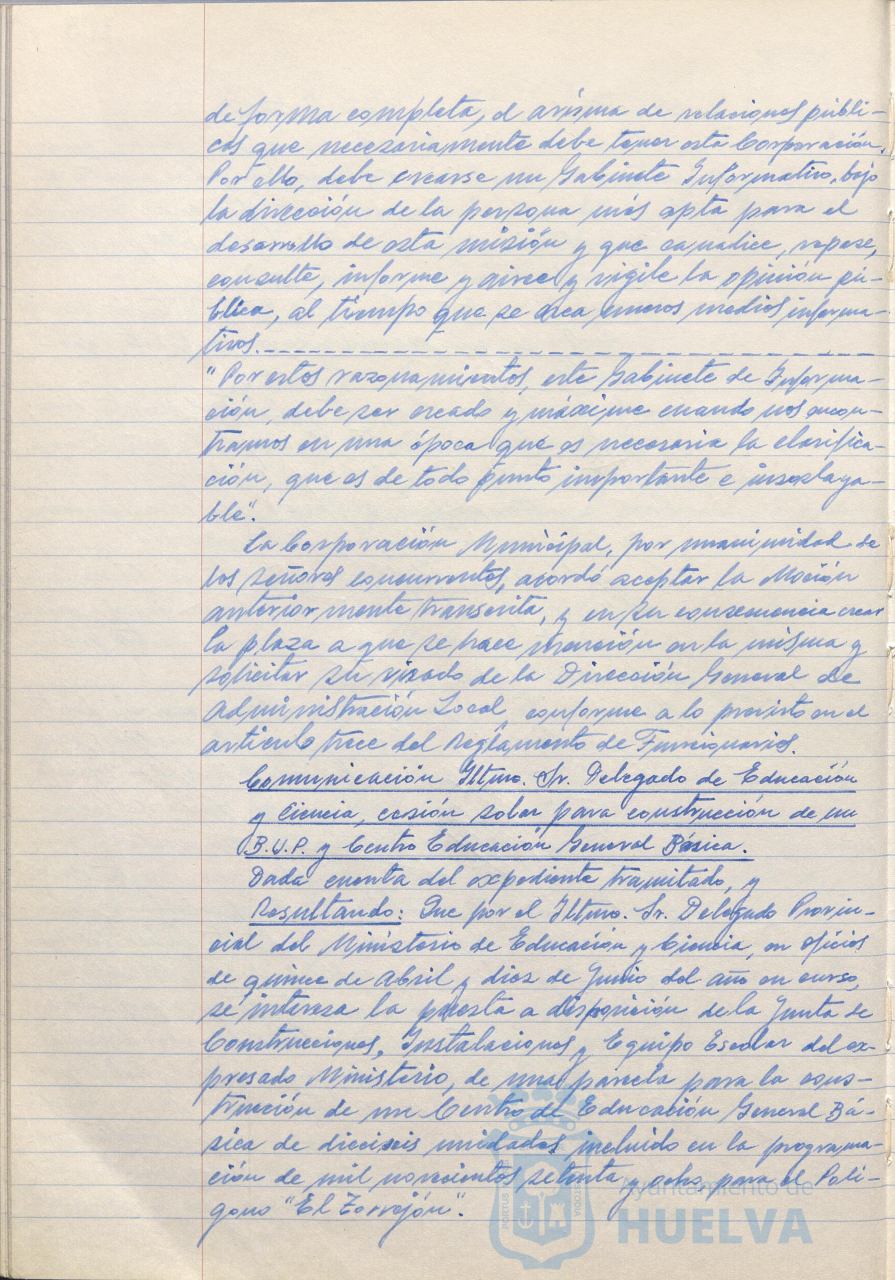 de forma completa, el carisma de relaciones públi-
cas que necesariamente debe tener esta Corporación.
Por ello, debe crearse un Gabinete Informativo, bajo
la dirección de la persona más apta para el
desarrollo de esta misión y que canalice, repase,
consulte, informe y airee y vigile la opinión pú-
blica, al tiempo que se crea nuevos medios informa-
tivos.
"Por estos razonamientos, este Gabinete de Informa-
ción, debe ser creado y máxime cuando nos encon-
tramos en una época que es necesaria la clarifica-
ción, que es de todo punto importante e insoslaya-
ble".
La Corporación Municipal, por unanimidad de
los señores concurrentes, acordó aceptar la Moción
anteriormente transcrita, y en su consecuencia crear
la plaza a que se hace mención en la misma y
solicitar su visado de la Dirección General de
Administración Local, conforme a lo previsto en el
artículo trece del Reglamento de Funcionarios.
Comunicación Iltmo. Sr. Delegado de Educación
y Ciencia, cesión solar para construcción de un
B.U.P. y Centro Educación General Básica.
Dada cuenta del expediente tramitado, y
Resultando: Que por el Iltmo. Sr. Delegado Provin-
cial del Ministerio de Educación y Ciencia, en oficios
de quince de Abril y diez de Junio del año en curso,
se interesa la puesta a disposición de la Junta de
Construcciones, Instalaciones y Equipo Escolar del ex-
presado Ministerio, de una parcela para la cons-
trucción de un Centro de Educación General Bá-
sica de dieciseis unidades incluido en la programa-
ción de mil novecientos setenta y ocho, para el Polí-
gono "El Torrejón".
Ayuntamiento de
HUELVA